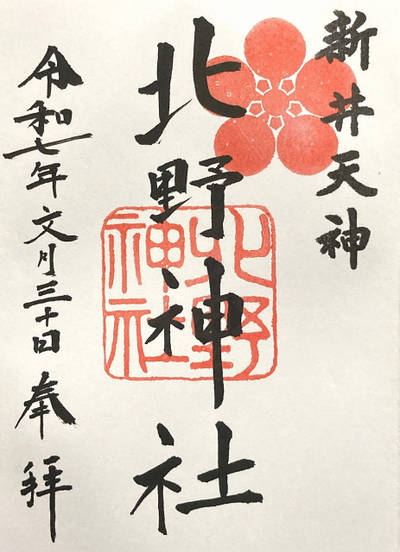 新井天神
北野神社
北野
神社
令和七年文月三十日奉拝